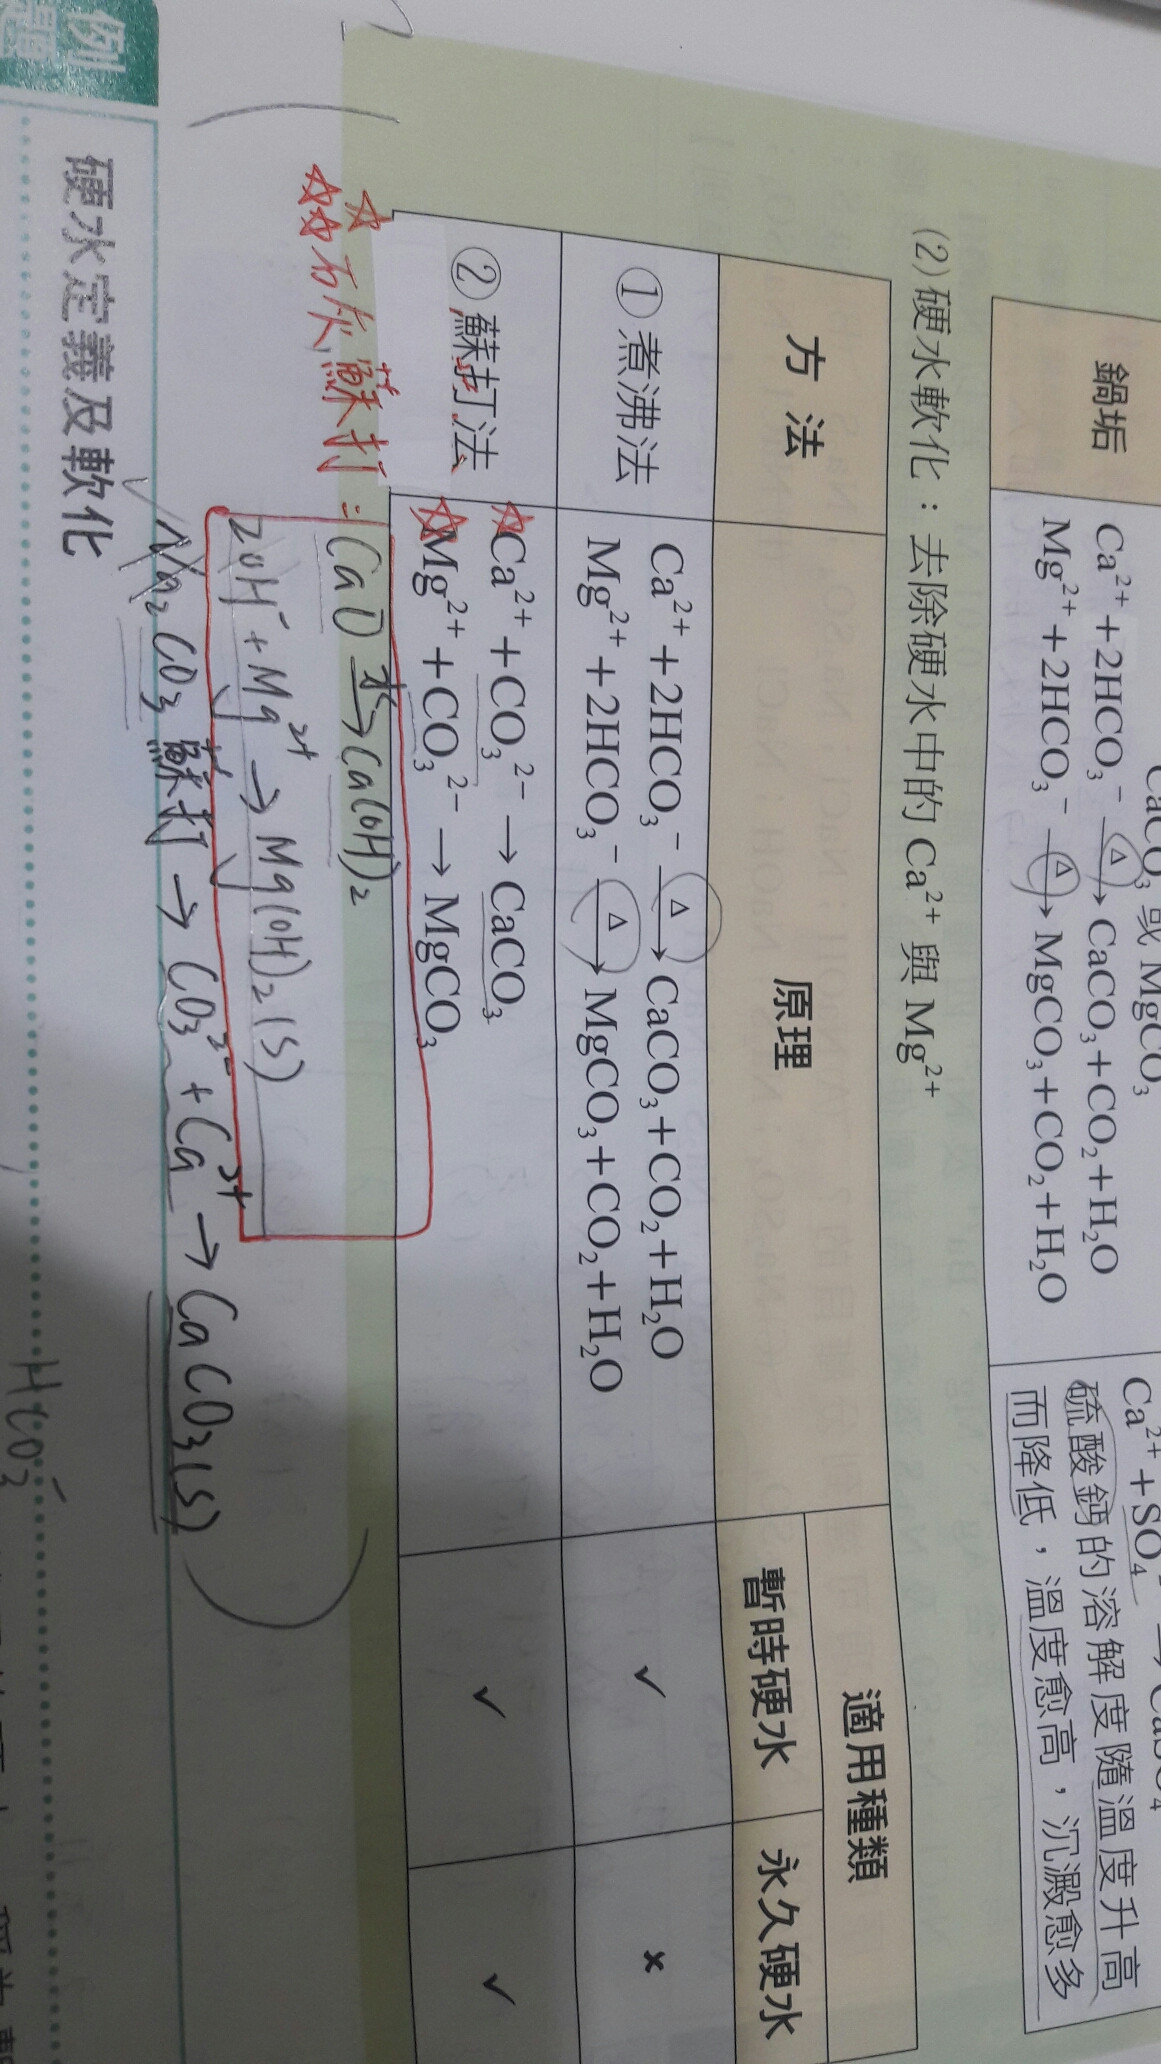 CaCO₃ 或 MgCO₃
鍋垢
Ca²⁺+2HCO₃⁻ —△→ CaCO₃+CO₂+H₂O
Mg²⁺+2HCO₃⁻ —△→ MgCO₃+CO₂+H₂O
Ca²⁺+SO₄²⁻→CaSO₄
硫酸鈣的溶解度隨溫度升高
而降低，溫度愈高，沉澱愈多
(2)硬水軟化：去除硬水中的 Ca²⁺ 與 Mg²⁺
方 法 原理 適用種類
暫時硬水 永久硬水
①煮沸法
Ca²⁺+2HCO₃⁻ —△→ CaCO₃+CO₂+H₂O
Mg²⁺+2HCO₃⁻ —△→ MgCO₃+CO₂+H₂O
✓ ×
②蘇打法
☆Ca²⁺+CO₃²⁻→CaCO₃
☆Mg²⁺+CO₃²⁻→MgCO₃
✓ ✓
☆☆☆石灰蘇打：CaO —水→ Ca(OH)₂
2OH⁻+Mg²⁺→Mg(OH)₂(s)
Na₂CO₃ 蘇打→CO₃²⁻+Ca²⁺→CaCO₃(s)
例題
硬水定義及軟化
HCO₃⁻